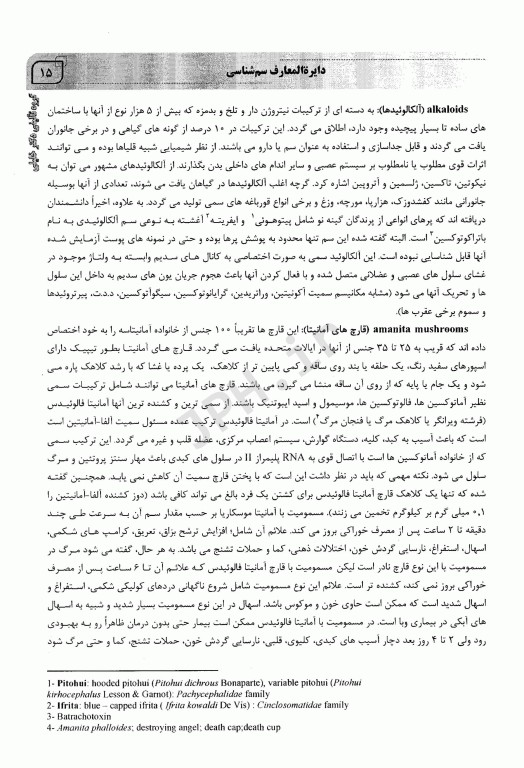 ۱۵
دایرة‌المعارف سم‌شناسی
alkaloids (آلکالوئیدها): به دسته ای از ترکیبات نیتروژن دار و تلخ و بدمزه که بیش از ۵ هزار نوع از آنها با ساختمان
های ساده تا بسیار پیچیده وجود دارد، اطلاق می گردد. این ترکیبات در ۱۰ درصد از گونه های گیاهی و در برخی جانوران
یافت می گردند و قابل جداسازی و استفاده به عنوان سم یا دارو می باشند. از نظر شیمیایی شبیه قلیاها بوده و می توانند
اثرات قوی مطلوب یا نامطلوب بر سیستم عصبی و سایر اندام های داخلی بدن بگذارند. از آلکالوئیدهای مشهور می توان به
نیکوتین، تاکسین، ژلسمین و آتروپین اشاره کرد. گرچه اغلب آلکالوئیدها در گیاهان یافت می شوند، تعدادی از آنها بوسیله
جانورانی مانند کفشدوزک، هزارپا، مورچه، وزغ و برخی انواع قورباغه های سمی تولید می گردد. به علاوه، اخیراً دانشمندان
دریافته اند که پرهای انواعی از پرندگان گینه نو شامل پیتوهوئی۱ و ایفریته۲ آغشته به نوعی سم آلکالوئیدی به نام
باتراکوتوکسین۳ است. البته گفته شده این سم تنها محدود به پوشش پرها بوده و حتی در نمونه های پوست آزمایش شده
آنها قابل شناسایی نبوده است. این آلکالوئید سمی به صورت اختصاصی به کانال های سدیم وابسته به ولتاژ موجود در
غشای سلول های عصبی و عضلانی متصل شده و با فعال کردن آنها باعث هجوم جریان یون های سدیم به داخل این سلول
ها و تحریک آنها می شود (مشابه مکانیسم سمیت آکونیتین، وراتریدین، گرایانوتوکسین، سیگوآتوکسین، د.د.ت، پیرتروئیدها
و سموم برخی عقرب ها).
amanita mushrooms (قارچ های آمانیتا): این قارچ ها تقریباً ۱۰۰ جنس از خانواده آمانیتاسه را به خود اختصاص
داده اند که قریب به ۲۵ تا ۳۵ جنس از آنها در ایالات متحده یافت می گردد. قارچ های آمانیتا بطور تیپیک دارای
اسپورهای سفید رنگ، یک حلقه یا بند روی ساقه و کمی پایین تر از کلاهک، یک پرده یا غشا که با رشد کلاهک پاره می
شود و یک جام یا پایه که از روی آن ساقه منشا می گیرد، می باشند. قارچ های آمانیتا می توانند شامل ترکیبات سمی
نظیر آماتوکسین ها، فالوتوکسین ها، موسیمول و اسید ایبوتنیک باشند. از سمی ترین و کشنده ترین آنها آمانیتا فالوئیدس
(فرشته ویرانگر یا کلاهک مرگ یا فنجان مرگ۴) است. در آمانیتا فالوئیدس ترکیب عمده مسئول سمیت آلفا-آمانیتین است
است که باعث آسیب به کبد، کلیه، دستگاه گوارش، سیستم اعصاب مرکزی، عضله قلب و غیره می گردد. این ترکیب سمی
که از خانواده آماتوکسین ها است با اتصال قوی به RNA پلیمراز II در سلول های کبدی باعث مهار سنتز پروتئین و مرگ
سلول می شود. نکته مهمی که باید در نظر داشت این است که با پختن قارچ سمیت آن کاهش نمی یابد. همچنین گفته
شده که تنها یک کلاهک قارچ آمانیتا فالوئیدس برای کشتن یک فرد بالغ می تواند کافی باشد (دوز کشنده آلفا-آمانیتین را
۰,۱ میلی گرم بر کیلوگرم تخمین می زنند). مسمومیت با آمانیتا موسکاریا بر حسب مقدار سم آن به سرعت طی چند
دقیقه تا ۲ ساعت پس از مصرف خوراکی بروز می کند. علائم آن شامل؛ افزایش ترشح بزاق، تعریق، کرامپ های شکمی،
اسهال، استفراغ، نارسایی گردش خون، اختلالات ذهنی، کما و حملات تشنج می باشد. به هر حال، گفته می شود مرگ در
مسمومیت با این نوع قارچ نادر است لیکن مسمومیت با قارچ آمانیتا فالوئیدس که علائم آن تا ۶ ساعت پس از مصرف
خوراکی بروز نمی کند، کشنده تر است. علائم این نوع مسمومیت شامل شروع ناگهانی دردهای کولیکی شکمی، استفراغ و
اسهال شدید است که ممکن است حاوی خون و موکوس باشد. اسهال در این نوع مسمومیت بسیار شدید و شبیه به اسهال
های آبکی در بیماری وبا است. در مسمومیت با آمانیتا فالوئیدس ممکن است بیمار حتی بدون درمان ظاهراً رو به بهبودی
رود ولی ۲ تا ۴ روز بعد دچار آسیب های کبدی، کلیوی، قلبی، نارسایی گردش خون، حملات تشنج، کما و حتی مرگ شود
1- Pitohui: hooded pitohui (Pitohui dichrous Bonaparte), variable pitohui (Pitohui
kirhocephalus Lesson & Garnot): Pachycephalidae family
2- Ifrita: blue – capped ifrita ( Ifrita kowaldi De Vis) : Cinclosomatidae family
3- Batrachotoxin
4- Amanita phalloides; destroying angel; death cap;death cup